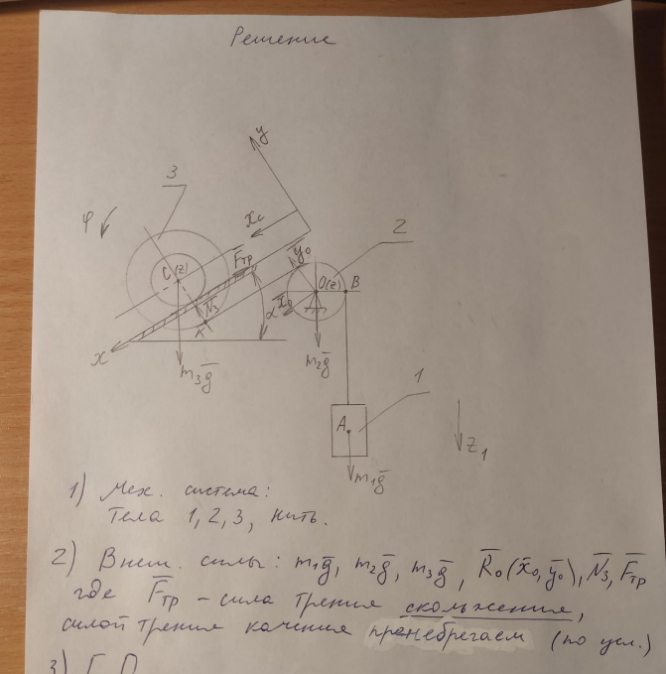 Решение
y
3
φ
xc
2
C(z)
Fтр
y₀
O(z)
B
N₃
α
x₀
K
x
m₃g
m₂g
1
A
z₁
m₁g
1) Мех. система:
Тела 1, 2, 3, нить.
2) Внеш. силы: m₁g, m₂g, m₃g, R₀(x₀, y₀), N₃, Fтр
где Fтр – сила трения скольжения,
силой трения качения пренебрегаем (по усл.)
3)